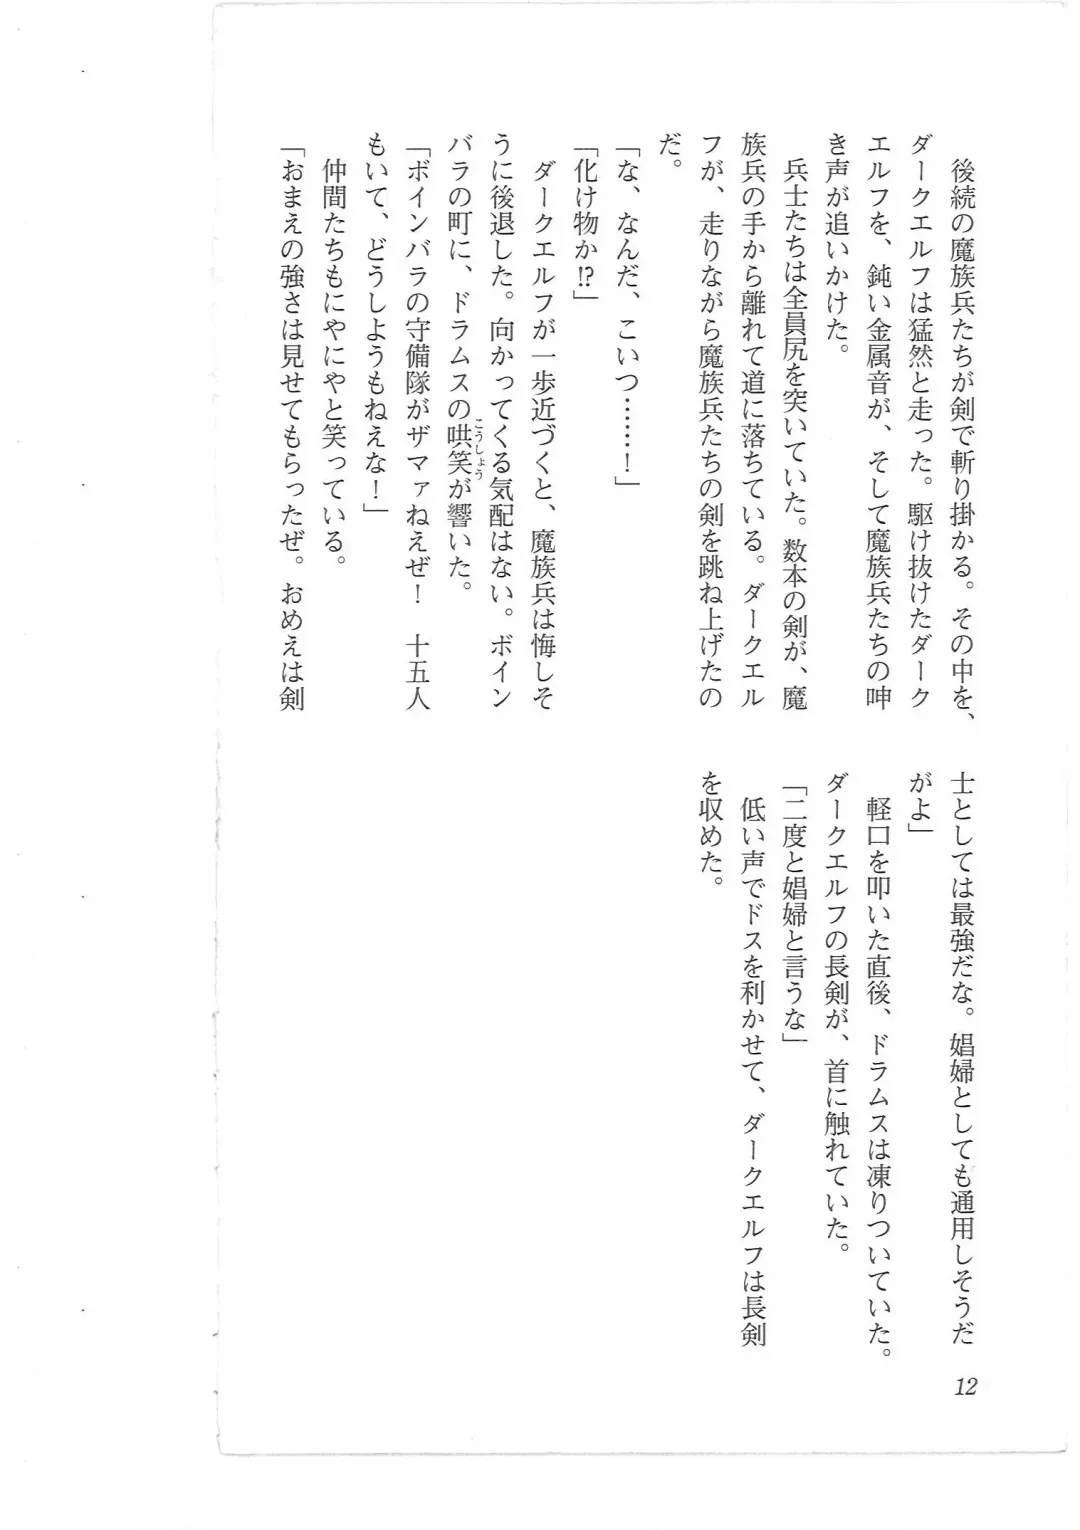 後続の魔族兵たちが剣で斬り掛かる。その中を、
ダークエルフは猛然と走った。駆け抜けたダーク
エルフを、鈍い金属音が、そして魔族兵たちの呻
き声が追いかけた。
兵士たちは全員尻を突いていた。数本の剣が、魔
族兵の手から離れて道に落ちている。ダークエル
フが、走りながら魔族兵たちの剣を跳ね上げたの
だ。
「な、なんだ、こいつ……！」
「化け物か!?」
ダークエルフが一歩近づくと、魔族兵は悔しそ
うに後退した。向かってくる気配はない。ボイン
バラの町に、ドラムスの哄笑が響いた。
こうしょう
「ボインバラの守備隊がザマァねえぜ！　十五人
もいて、どうしようもねえな！」
仲間たちもにやにやと笑っている。
「おまえの強さは見せてもらったぜ。おめえは剣
士としては最強だな。娼婦としても通用しそうだ
がよ」
軽口を叩いた直後、ドラムスは凍りついていた。
ダークエルフの長剣が、首に触れていた。
「二度と娼婦と言うな」
低い声でドスを利かせて、ダークエルフは長剣
を収めた。
12